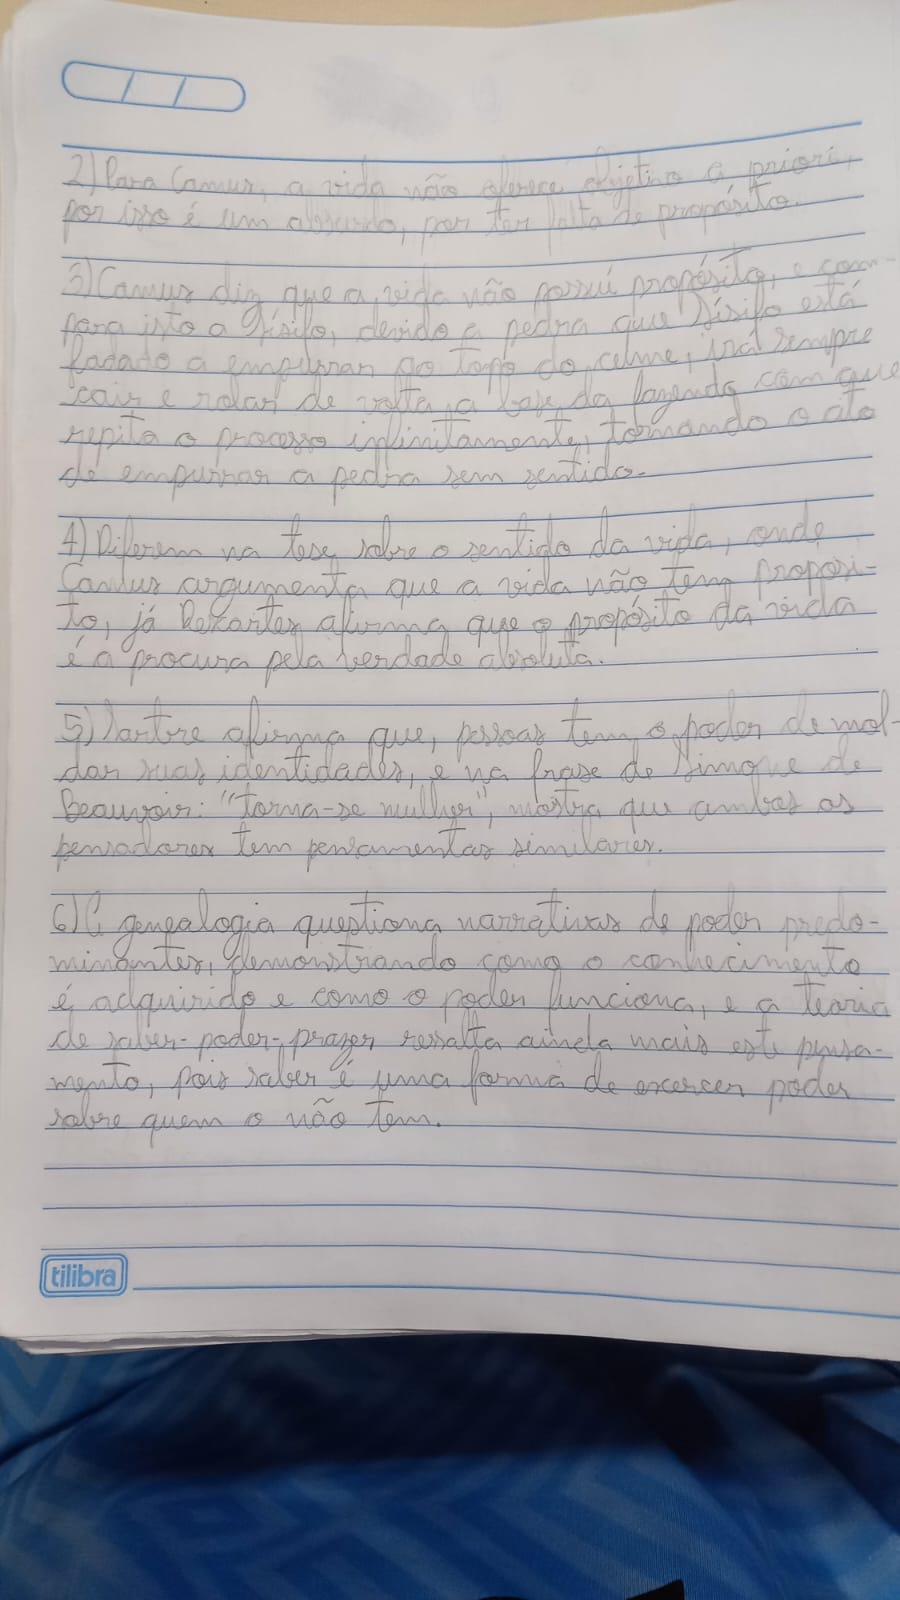 2) Para Camus, a vida não oferece objetivo a priori,
por isso é um absurdo, por ter falta de propósito.
3) Camus diz que a vida não possuí propósito, e com-
para isto a Sísifo, devido a pedra que Sísifo está
fadado a empurrar ao topo do celme, irá sempre
cair e rolar de volta a base da fazendo com que
repita o processo infinitamente, tornando o ato
de empurrar a pedra sem sentido.
4) Diferem na tese sobre o sentido da vida, onde
Camus argumenta que a vida não tem proposi-
to, já Dekartes afirma que o propósito da vida
é a procura pela verdade absoluta.
5) Sartre afirma que, pessoas tem o poder de mol-
dar suas identidades, e na frase de Simone de
Beauvoir: "torna-se mulher", mostra que ambos os
pensadores tem pensamentos similares.
6) A genealogia questiona narrativas de poder predo-
minantes, demonstrando como o conhecimento
é adquirido e como o poder funciona, e a teoria
de saber-poder-prazer ressalta ainda mais este pensa-
mento, pois saber é uma forma de excercer poder
sobre quem o não tem.
tilibra